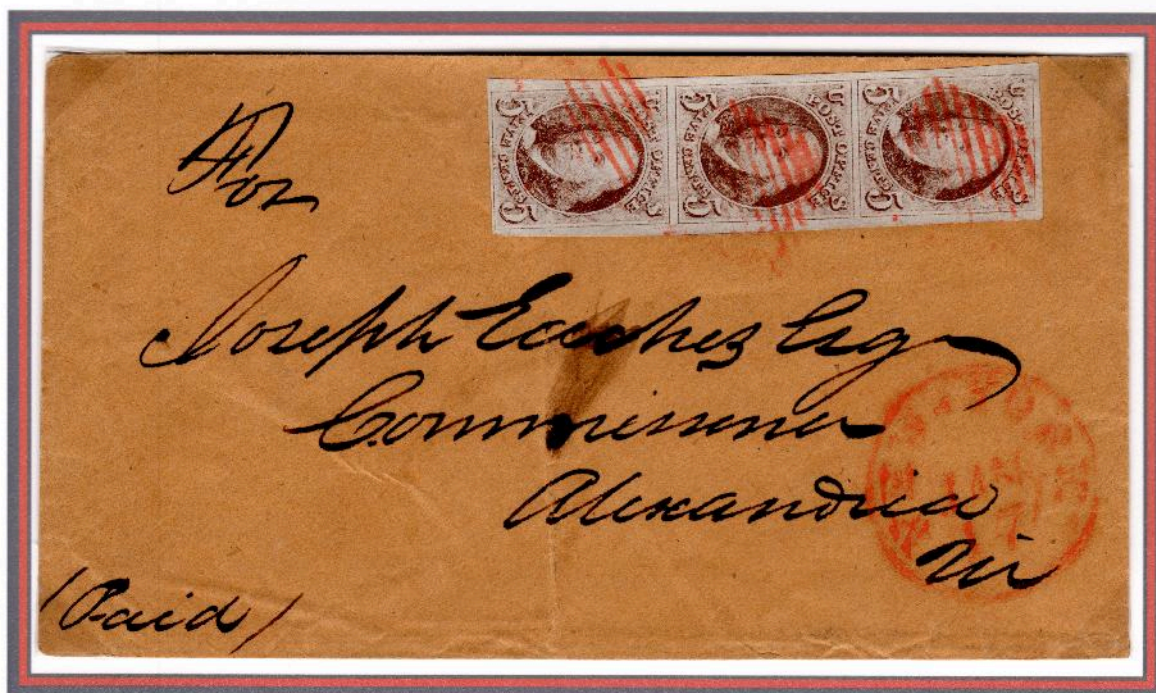 U S POST OFFICE
5 FIVE CENTS 5
U S POST OFFICE
5 FIVE CENTS 5
U S POST OFFICE
5 FIVE CENTS 5
For
Joseph Eaches Esq
Commissioner
Alexandria
(Paid)